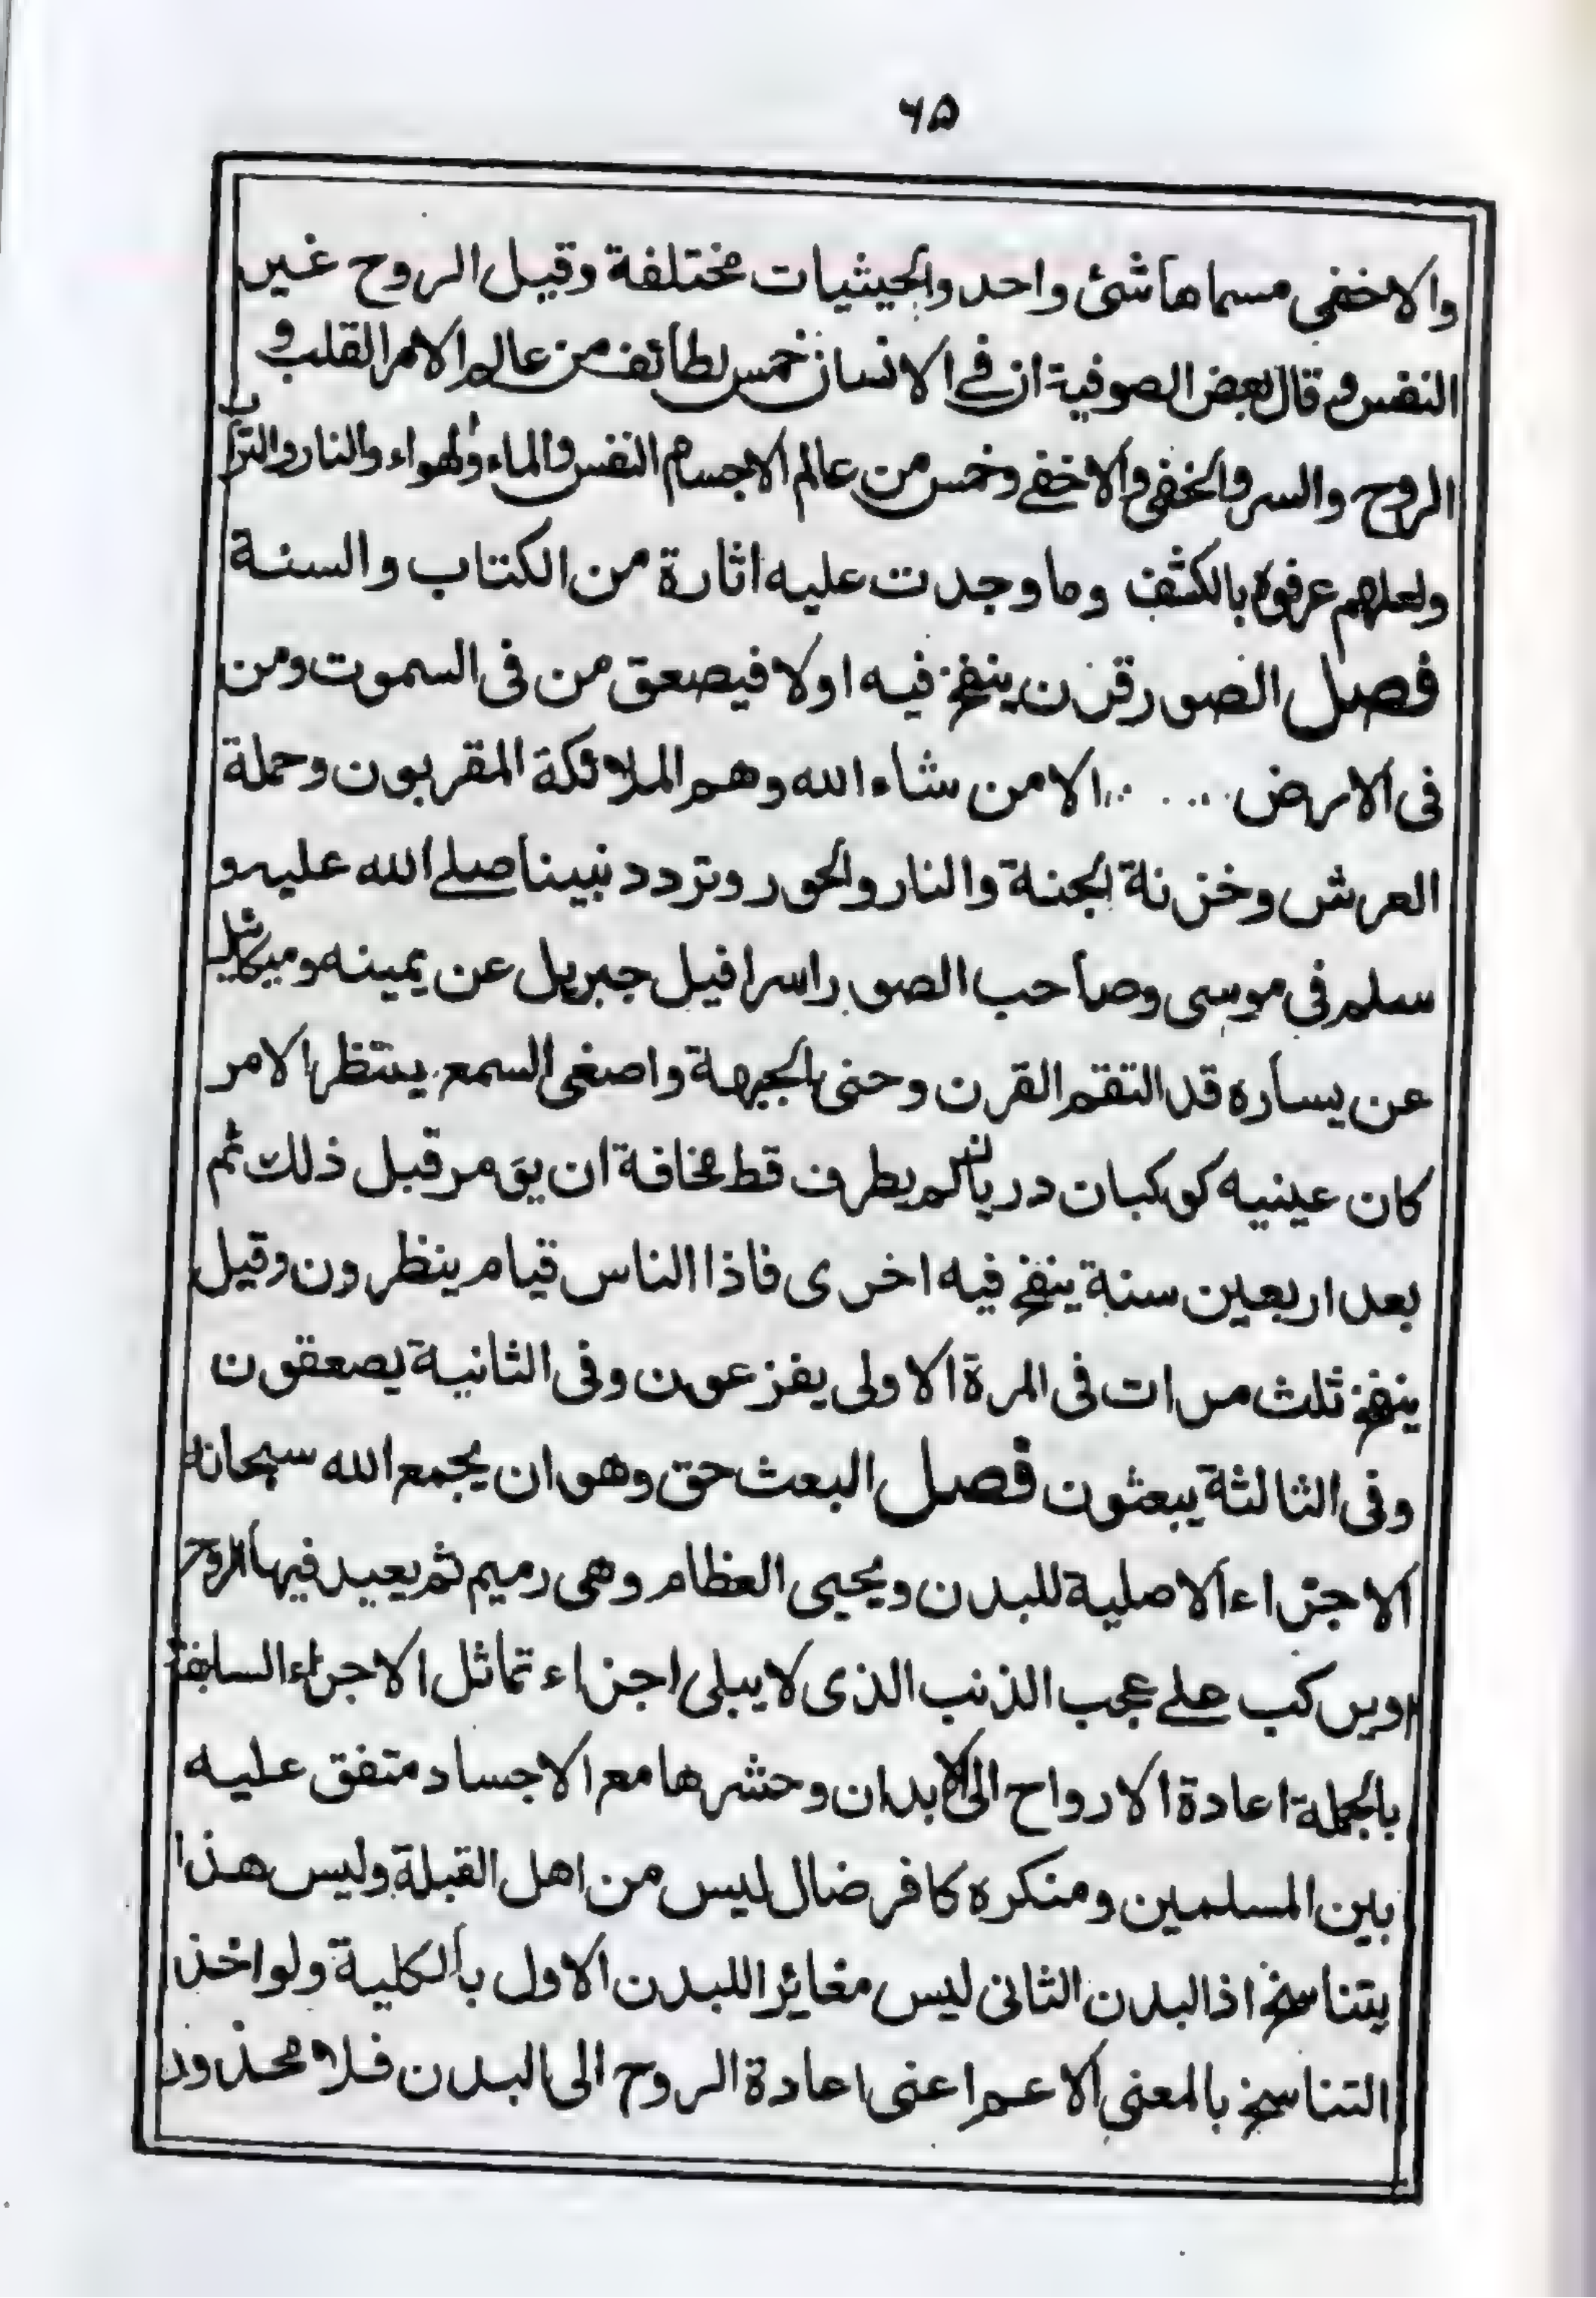 ٦٥
والاخفي مسماها شئ واحد والحيثيات مختلفة وقيل الروح غير
النفس و قال بعض الصوفية ان في الانسان خمس لطائف من عالم الامر القلب و
الروح والسر والخفي والاخفي وخمس من عالم الاجسام النفس والماء والهواء والنار والتراب
ولعلهم عرفوه بالكشف وما وجدت عليه اثارة من الكتاب والسنة
فصل الصور قرن ينفخ فيه اولا فيصعق من فى السموت ومن
فى الارض الا من شاء الله وهم الملائكة المقربون وحملة
العرش وخزنة الجنة والنار والحور وتردد نبينا صلے الله عليه و
سلم فى موسى وصاحب الصور اسرافيل جبريل عن يمينه وميكائيل
عن يساره قد التقم القرن وحنى الجبهة واصغى السمع ينتظر الامر
كان عينيه كوكبان دريان لم يطرف قط مخافة ان يؤمر قبل ذلك ثم
بعد اربعين سنة ينفخ فيه اخرى فاذا الناس قيام ينظرون وقيل
ينفخ ثلث مرات فى المرة الاولى يفزعون وفى الثانية يصعقون
وفى الثالثة يبعثون فصل البعث حق وهو ان يجمع الله سبحانه
الاجزاء الاصلية للبدن ويحيى العظام وهى رميم ثم يعيد فيها الروح
ويركب علے عجب الذنب الذى لا يبلى اجزاء تماثل الاجزاء السابقة
بالجملة اعادة الارواح الى الابدان وحشرها مع الاجساد متفق عليه
بين المسلمين ومنكره كافر ضال ليس من اهل القبلة وليس هذا
بتناسخ اذ البدن الثانى ليس مغائرا للبدن الاول بالكلية ولو اخذ
التناسخ بالمعنى الاعم اعنى اعادة الروح الى البدن فلا محذور